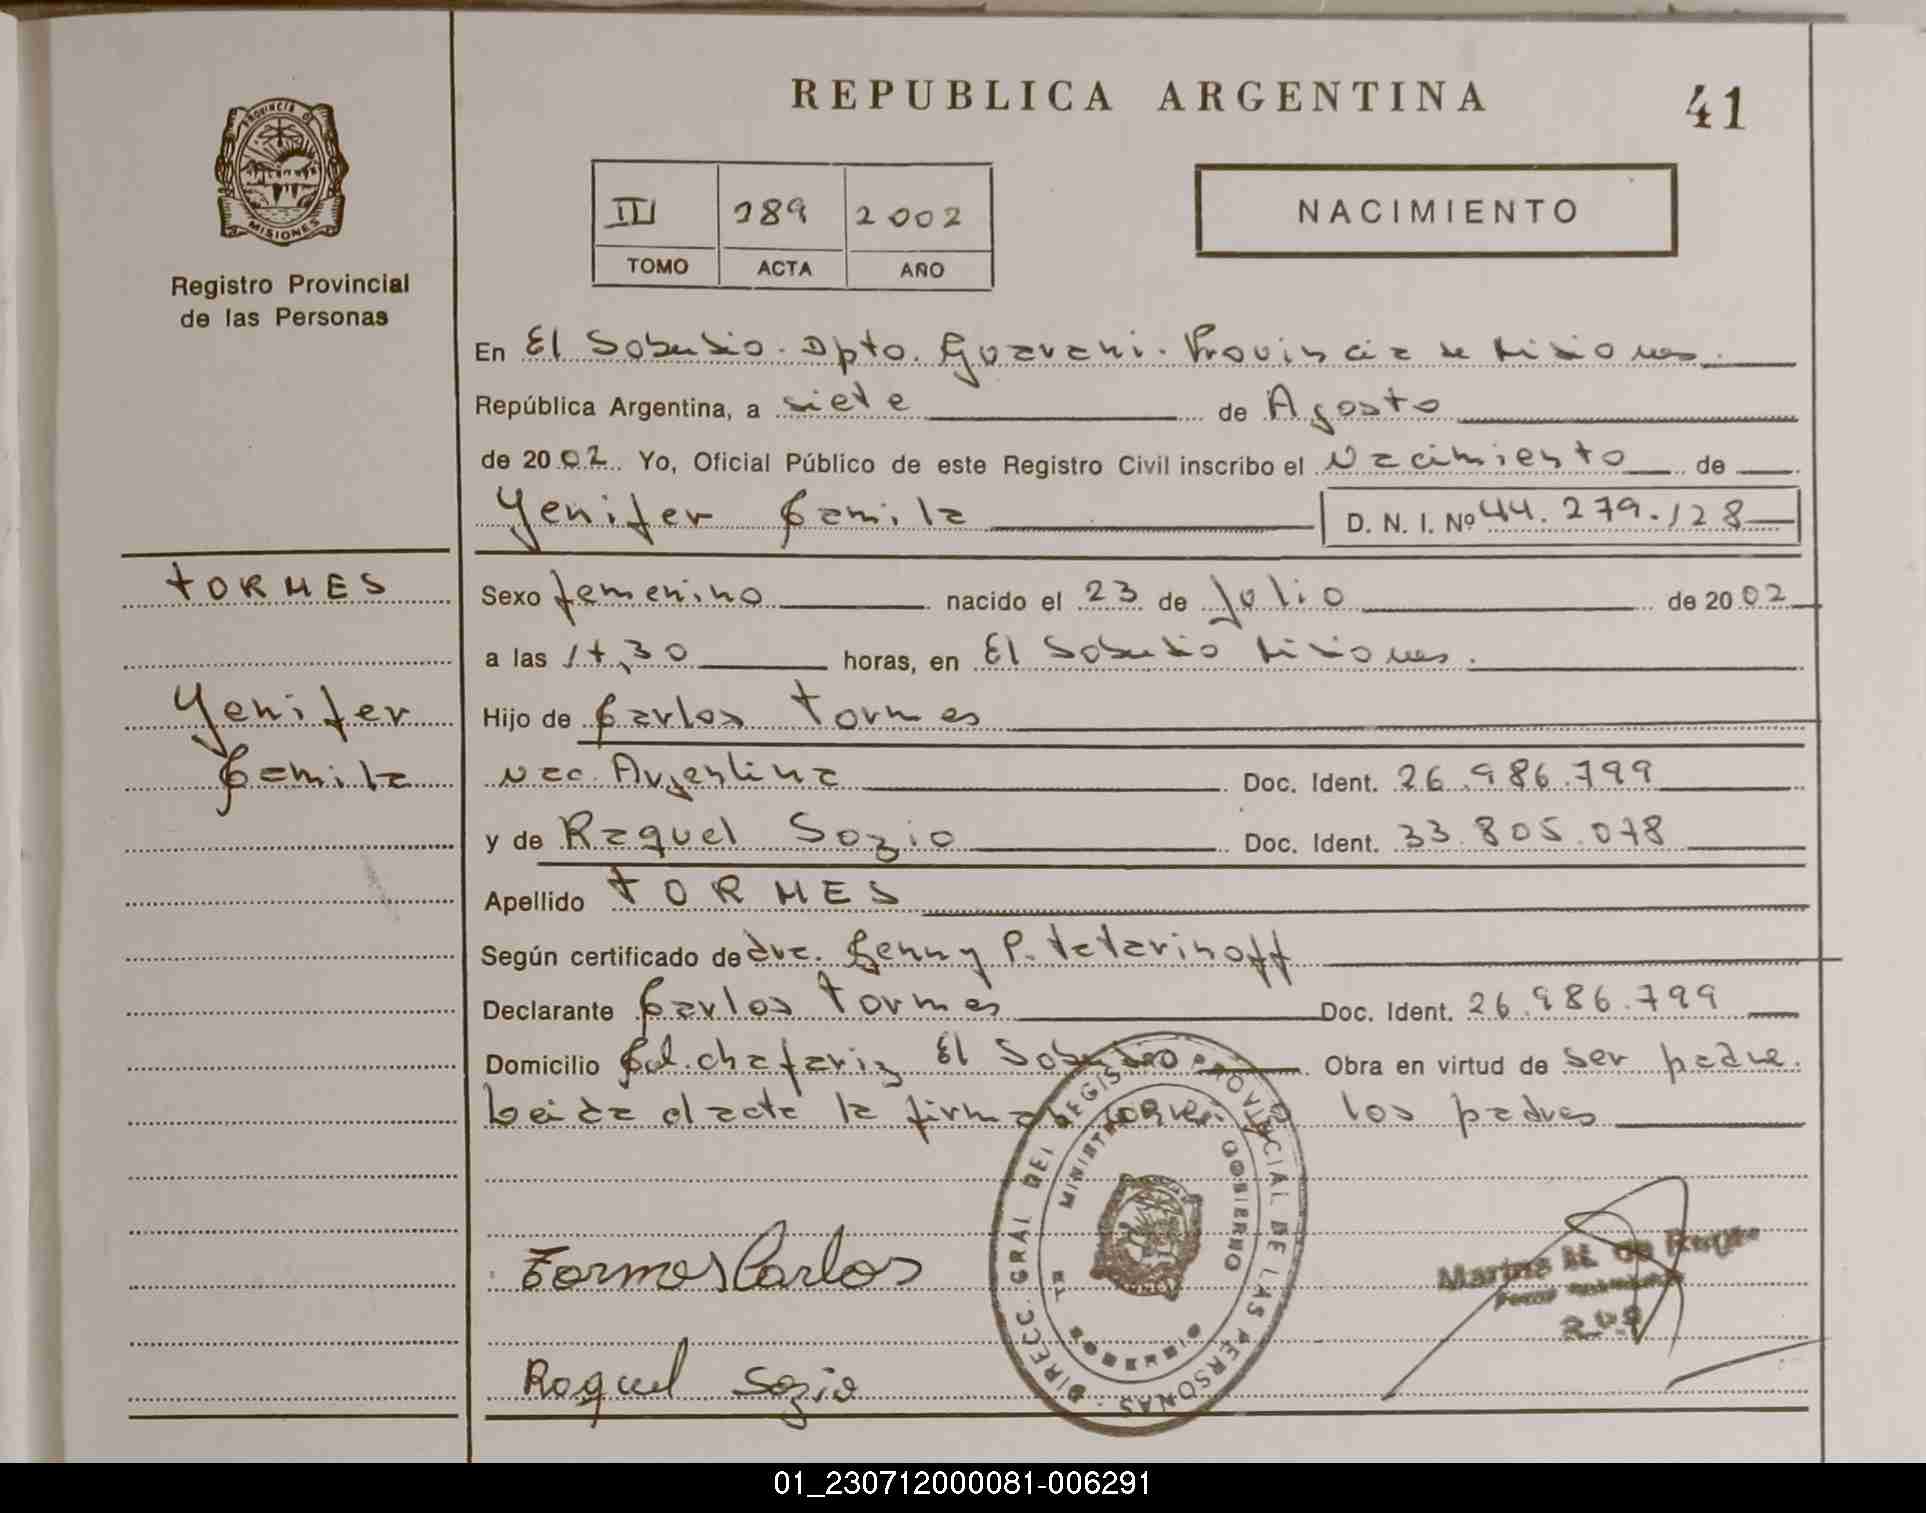 REPUBLICA ARGENTINA
41
PROVINCIA DE
MISIONES
Registro Provincial
de las Personas
III 189 2002
TOMO ACTA AÑO
NACIMIENTO
En El Soberbio. Dpto. Guarani. Provincia de Misiones.
República Argentina, a siete de Agosto
de 2002. Yo, Oficial Público de este Registro Civil inscribo el Nacimiento de
Yenifer Camila D. N. I. Nº 44.279.128
TORMES
Yenifer
Camila
Sexo femenino nacido el 23 de Julio de 2002
a las 17,30 horas, en El Soberbio Misiones.
Hijo de Carlos Tormes
Nac. Argentina Doc. Ident. 26.986.799
y de Raquel Sozio Doc. Ident. 33.805.078
Apellido TORMES
Según certificado de dra. Jenny P. Tatarinoff
Declarante Carlos Tormes Doc. Ident. 26.986.799
Domicilio Col. chafariz El Soberbio Obra en virtud de ser padre.
Leida el acta la firman los padres
DIRECC. GRAL DEL REGISTRO PROVINCIAL DE LAS PERSONAS
GOBIERNO
Tormes Carlos
Raquel Sozio
01_230712000081-006291